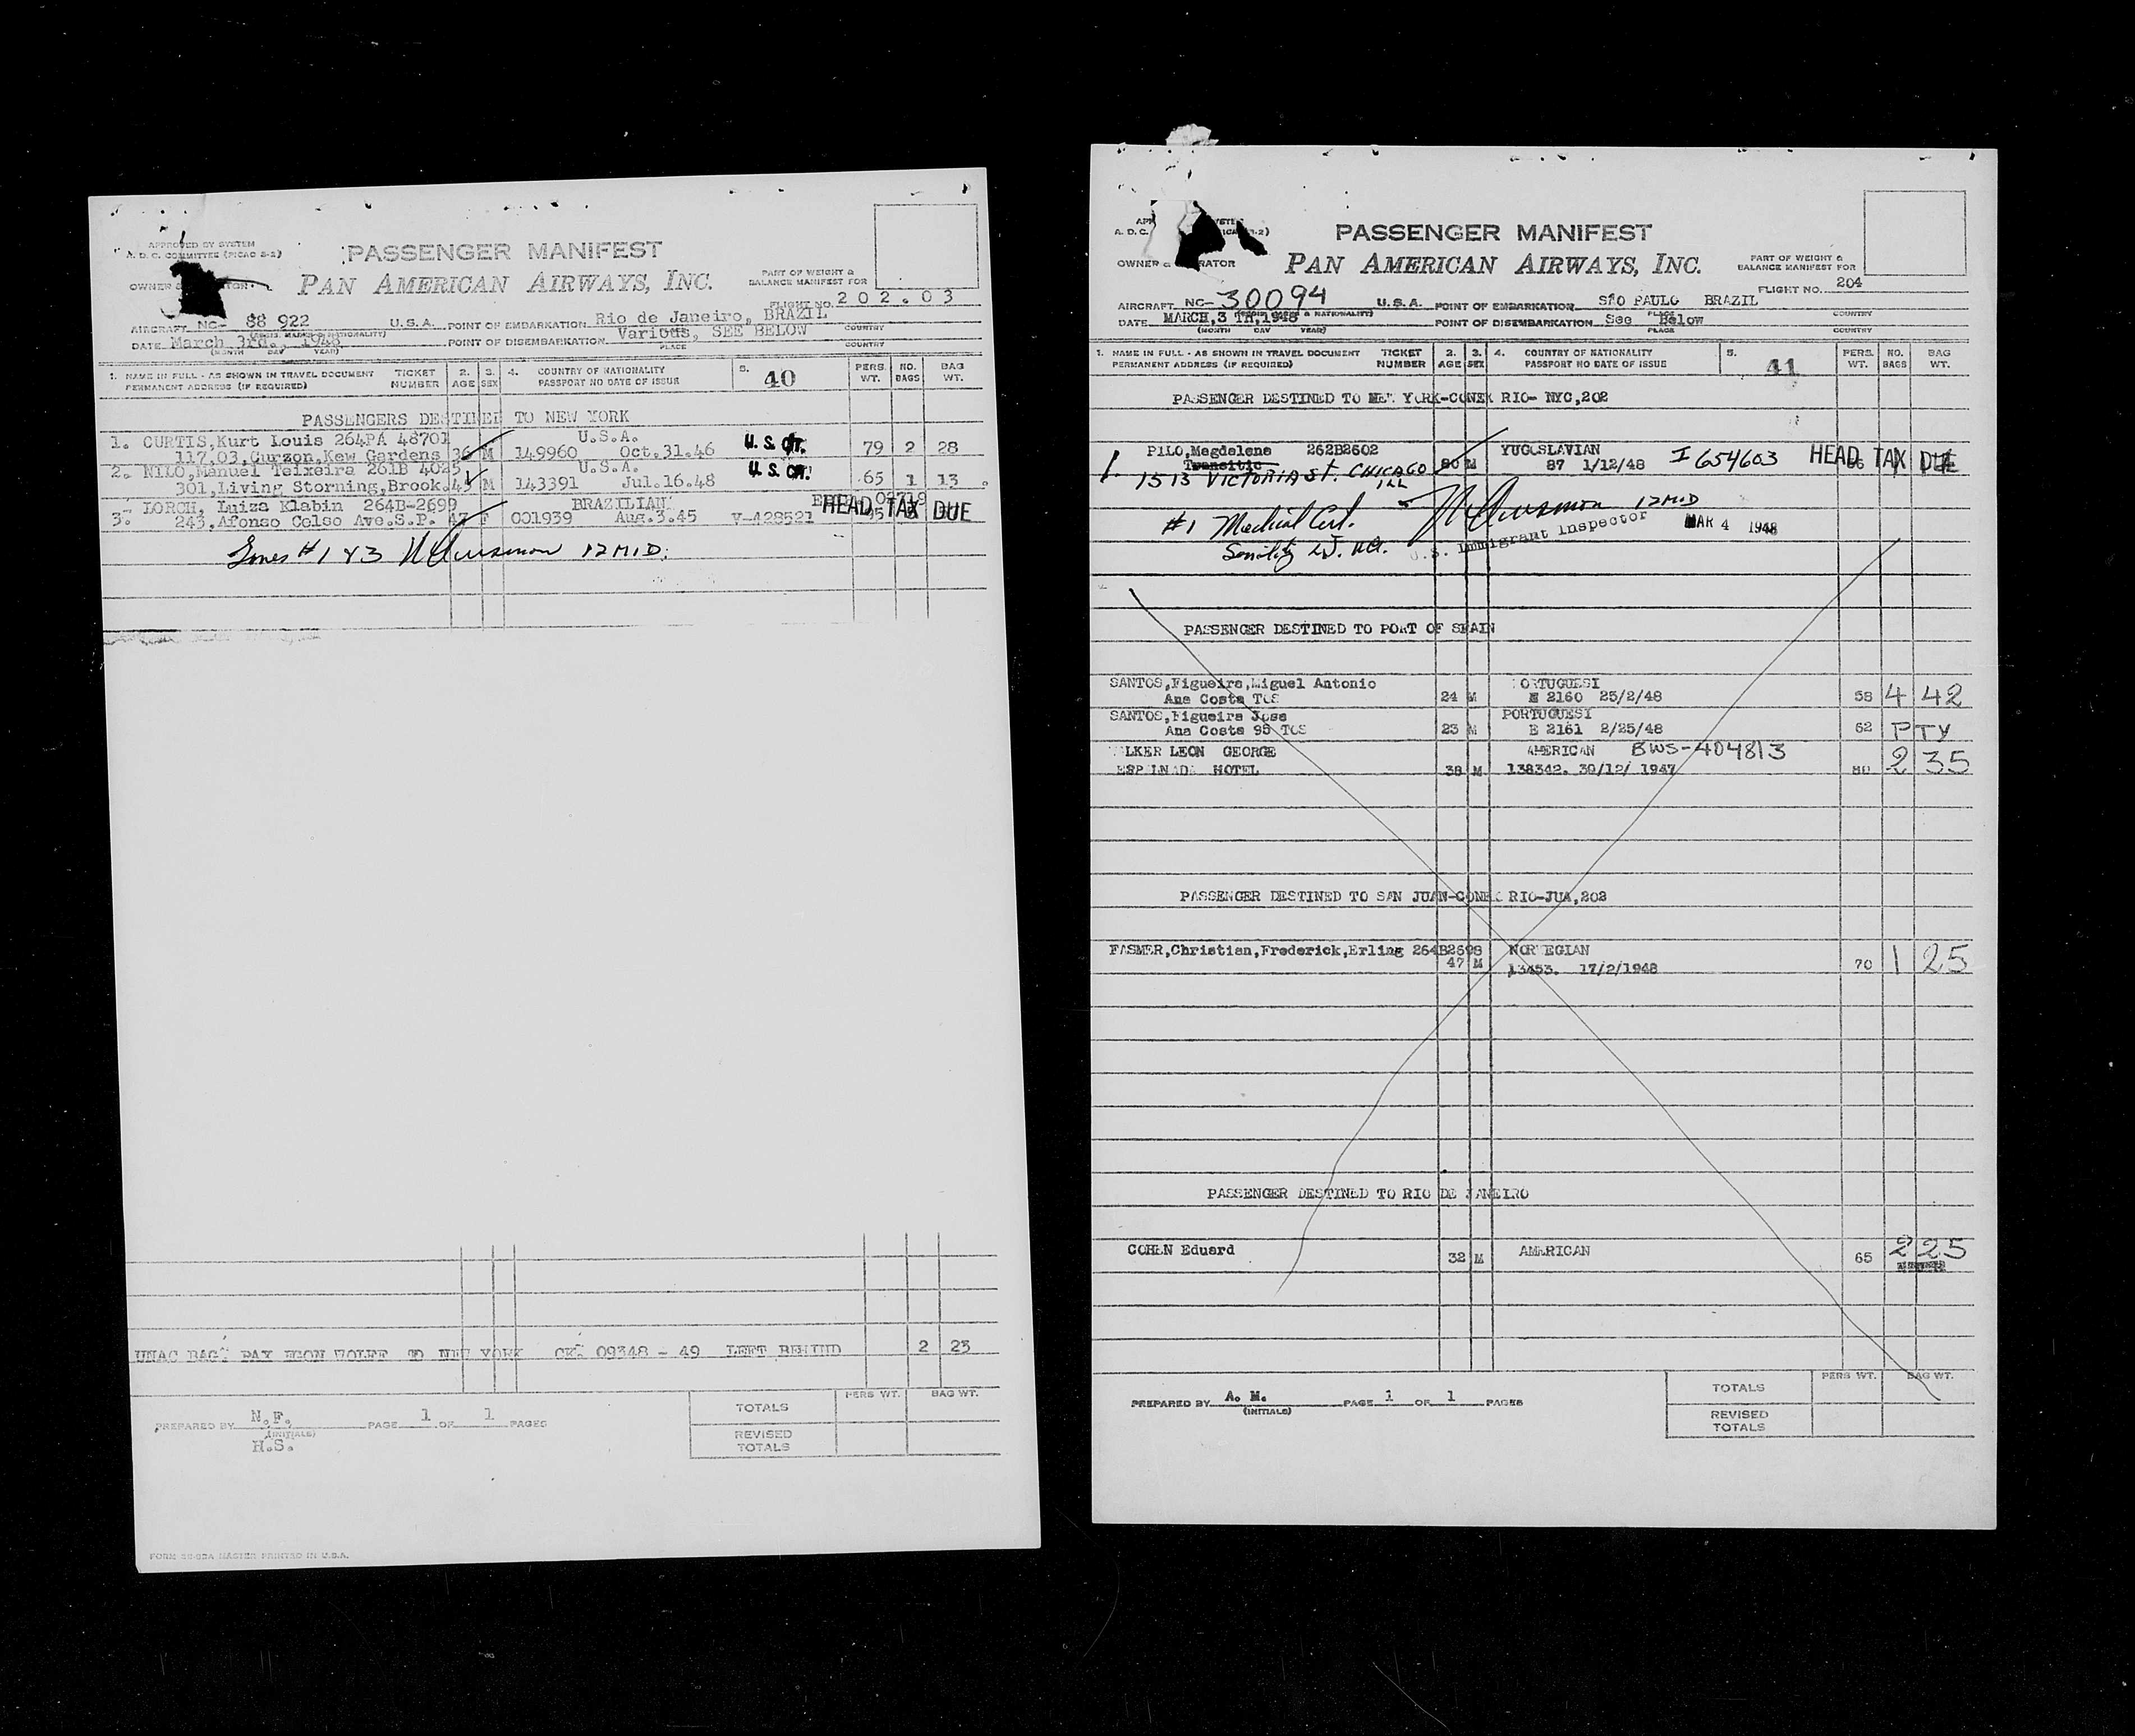 APPROVED BY SYSTEM
A. D. C. COMMITTEE (PICAO 2-2)
PASSENGER MANIFEST
OWNER
PAN AMERICAN AIRWAYS, INC.
PART OF WEIGHT &
BALANCE MANIFEST FOR
FLIGHT NO. 202.03
AIRCRAFT NC- 88 922 U.S.A. POINT OF EMBARKATION Rio de Janeiro, BRAZIL
DATE March 3rd., 1948 POINT OF DISEMBARKATION Various, SEE BELOW
(MONTH DAY YEAR) PLACE COUNTRY
1. NAME IN FULL - AS SHOWN IN TRAVEL DOCUMENT TICKET 2. 3. 4. COUNTRY OF NATIONALITY 5. 40 PERS. NO. BAG
PERMANENT ADDRESS (IF REQUIRED) NUMBER AGE SEX PASSPORT NO DATE OF ISSUE WT. BAGS WT.
PASSENGERS DESTINED TO NEW YORK
1. CURTIS,Kurt Louis 264PA 48701 U.S.A.
117.03,Curzon,Kew Gardens 36 M 149960 Oct.31.46 U.S. CIT. 79 2 28
2. NILO,Manuel Teixeira 261B 4025 U.S.A.
301,Living Storning,Brook.45 M 143391 Jul.16.48 U.S. CIT. 65 1 13
3. LORCH, Luiza Klabin 264B-2699 BRAZILIAN
243,Afonso Celso Ave.S.P. 47 F 001939 Aug.3.45 V-428521 HEAD TAX DUE
Lines #1 & 3 12 MID.
UNAC BAG PAX EGON WOLFF TO NEW YORK CK. 09348 - 49 LEFT BEHIND 2 23
PERS WT. BAG WT.
TOTALS
PREPARED BY N.F. PAGE 1 OF 1 PAGES
(INITIALS)
H.S.
REVISED
TOTALS
FORM MASTER PRINTED IN U.S.A.
A. D. C.
PASSENGER MANIFEST
OWNER
PAN AMERICAN AIRWAYS, INC.
PART OF WEIGHT &
BALANCE MANIFEST FOR
FLIGHT NO. 204
AIRCRAFT NC- 30094 U.S.A. POINT OF EMBARKATION SÃO PAULO BRAZIL
DATE MARCH,3 TH,1948 POINT OF DISEMBARKATION See Below
(MONTH DAY YEAR) PLACE COUNTRY
1. NAME IN FULL - AS SHOWN IN TRAVEL DOCUMENT TICKET 2. 3. 4. COUNTRY OF NATIONALITY 5. 41 PERS. NO. BAG
PERMANENT ADDRESS (IF REQUIRED) NUMBER AGE SEX PASSPORT NO DATE OF ISSUE WT. BAGS WT.
PASSENGER DESTINED TO NEW YORK-CONEX RIO- NYC,202
1 PILO,Magdalena 262B2602 YUGOSLAVIAN
Transitic 80 M 87 1/12/48 I 654603 HEAD TAX DUE
1513 VICTORIA St. CHICAGO
ILL
#1 Medical Cert. 12 MID
Senility U.S. Immigrant Inspector MAR 4 1948
PASSENGER DESTINED TO PORT OF SPAIN
SANTOS,Figueira,Miguel Antonio PORTUGUESI
Ana Costa TCS 24 M E 2160 25/2/48 58 4 42
SANTOS,Figueira Jose PORTUGUESI
Ana Costa 95 TCS 23 M E 2161 2/25/48 62 PTY
LKER LEON GEORGE AMERICAN BWS-404813
ESPLNADA HOTEL 38 M 138342. 30/12/ 1947 80 2 35
PASSENGER DESTINED TO SAN JUAN-CONEX RIO-JUA,202
FASMER,Christian,Frederick,Erling 264B2698 NORWEGIAN
47 M 13453. 17/2/1948 70 1 25
PASSENGER DESTINED TO RIO DE JANEIRO
COHEN Eduard 32 M AMERICAN 65 2 25
PERS WT. BAG WT.
TOTALS
PREPARED BY A. M. PAGE 1 OF 1 PAGES
(INITIALS)
REVISED
TOTALS